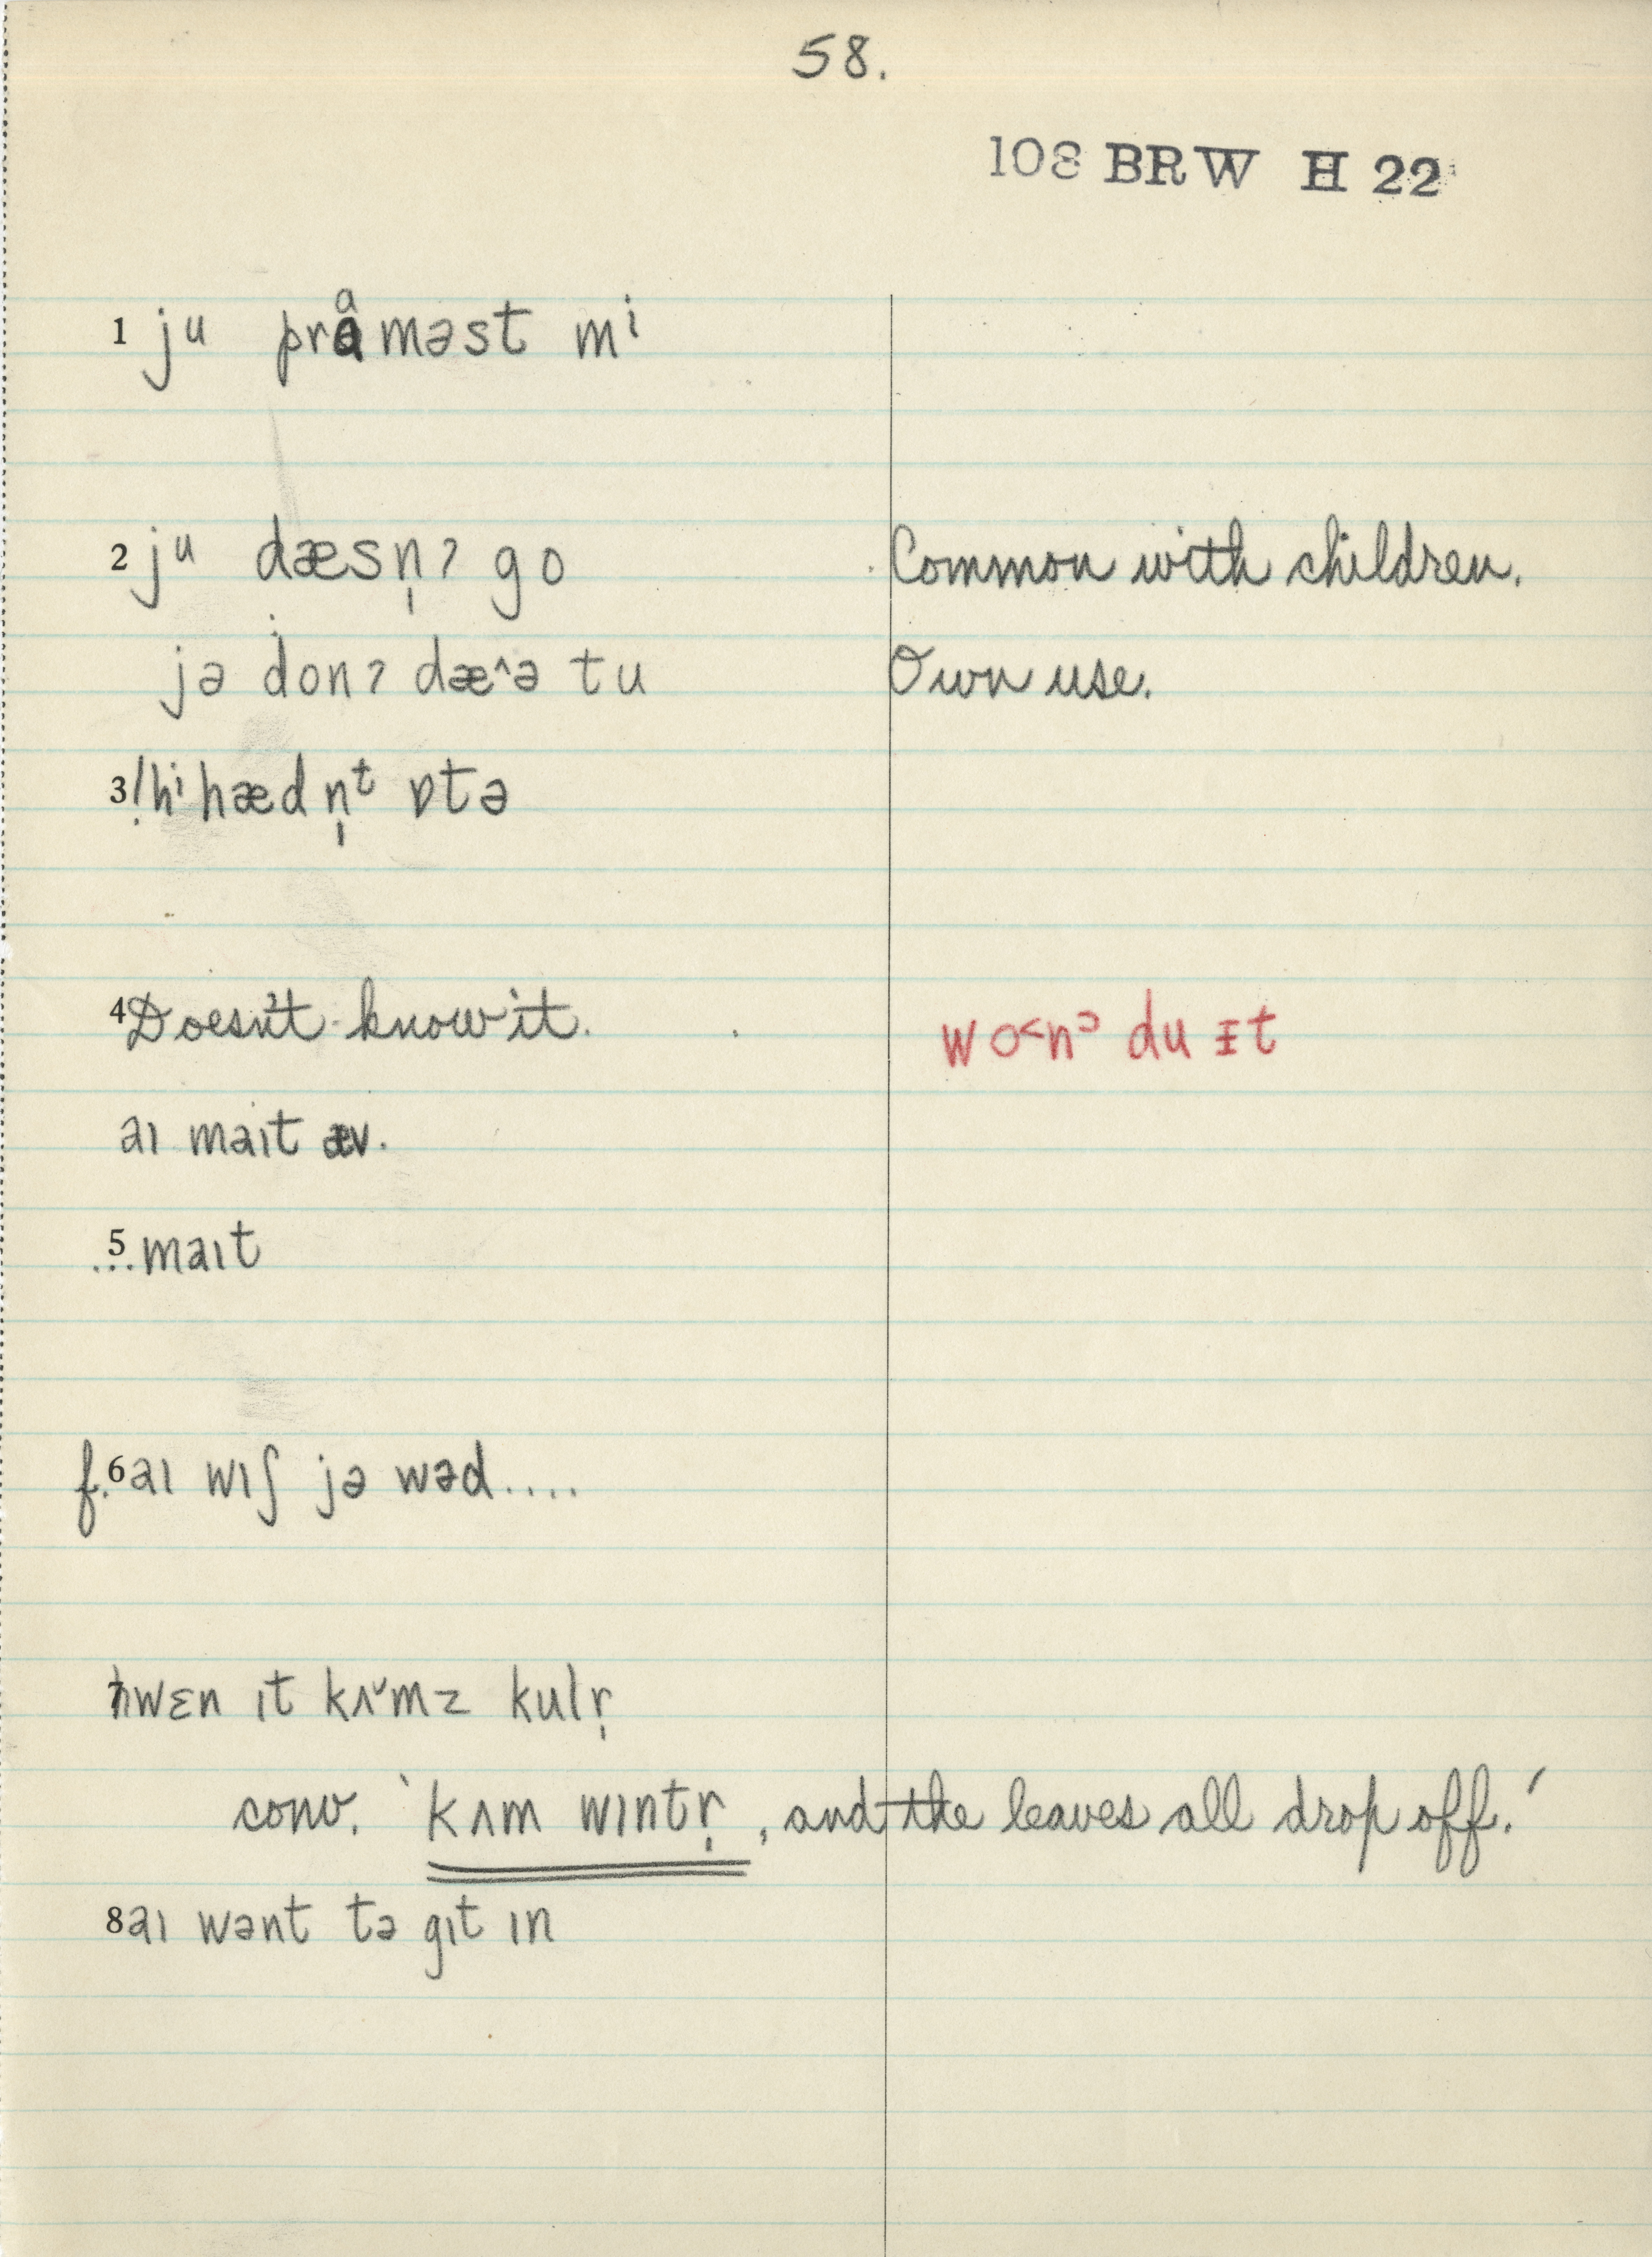 58.
108 BRW H 22
1 jᵘ prɑməst mⁱ
2 jᵘ dæsn̩ʔ go Common with children.
jə donʔ dæ^ə tu Own use.
3 !hⁱ hædn̩ᵗ ɒtə
4 Doesn't know it. wo<nᵓ du ɪt
aɪ maɪt æv.
5 ...maɪt
f. 6 aɪ wɪʃ jə wəd....
7 hwɛn ɪt kʌ˅mz kulr̩
conv. 'kʌm wɪntr̩, and the leaves all drop off.'
8 aɪ wənt tə gɪt ɪn